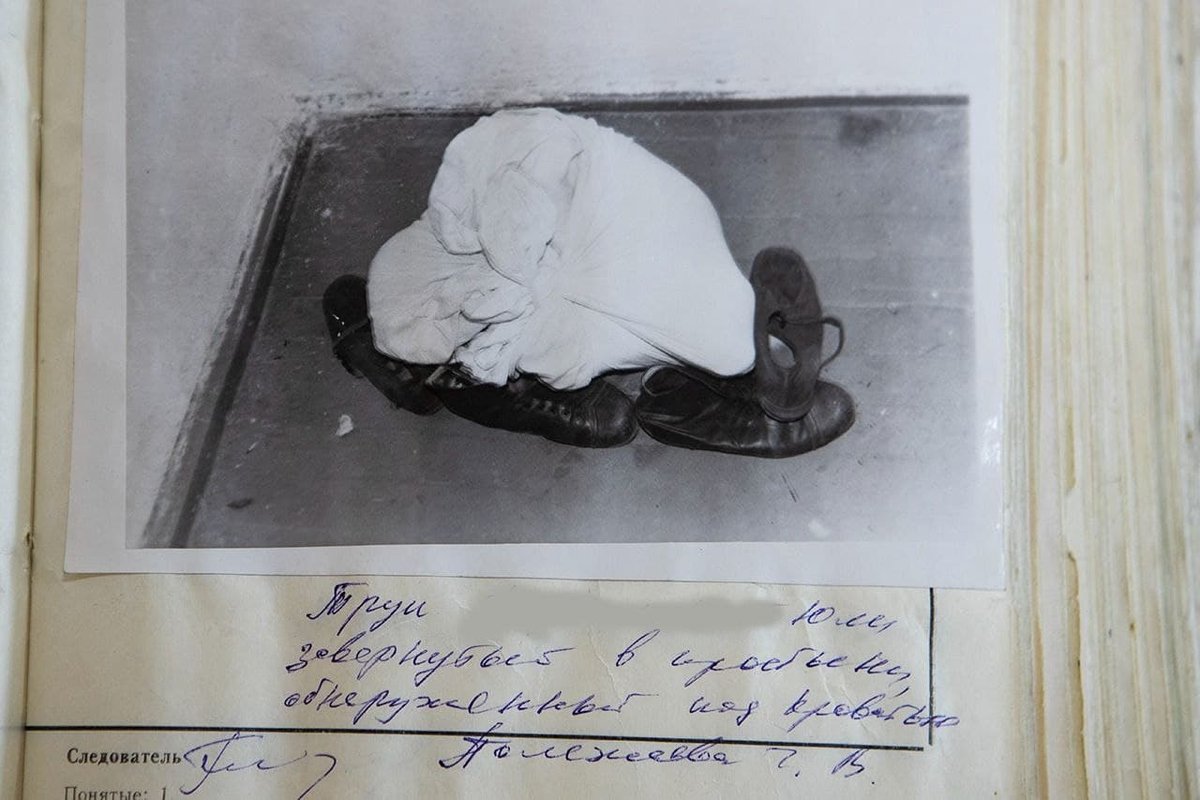 Труп Юли
завернутый в простыни,
обнаруженный под кроватью
Следователь Полежаева Г. В.
Понятые: 1